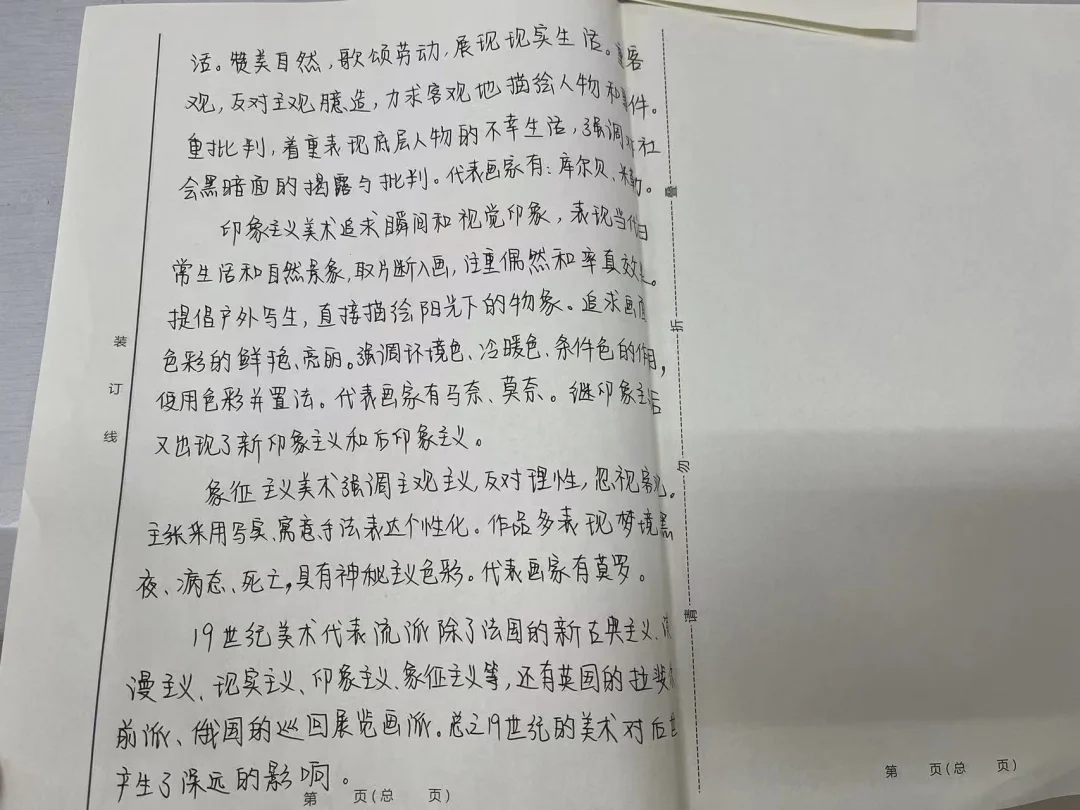 活。赞美自然，歌颂劳动，展现现实生活。重客
观，反对主观臆造，力求客观地描绘人物和事件。
重批判，着重表现底层人物的不幸生活，强调对社
会黑暗面的揭露与批判。代表画家有：库尔贝、米勒。
印象主义美术追求瞬间和视觉印象，表现当代日
常生活和自然景象，取片断入画，注重偶然和率真效果。
提倡户外写生，直接描绘阳光下的物象。追求画面
色彩的鲜艳、亮丽。强调环境色、冷暖色、条件色的作用，
使用色彩并置法。代表画家有马奈、莫奈。继印象主
又出现了新印象主义和后印象主义。
象征主义美术强调主观主义，反对理性，忽视客观。
主张采用写实、寓意手法表达个性化。作品多表现梦境黑
夜、病态、死亡，具有神秘主义色彩。代表画家有莫罗。
19世纪美术代表流派除了法国的新古典主义、浪
漫主义、现实主义、印象主义、象征主义等，还有英国的拉斐尔
前派、俄国的巡回展览画派。总之19世纪的美术对后世
产生了深远的影响。
装
订
线
叠
折
勿
请
第 页(总 页)
第 页(总 页)